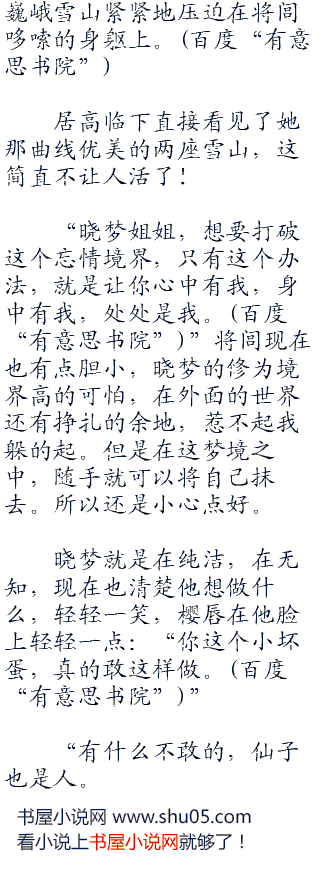 巍峨雪山紧紧地压迫在将闾
哆嗦的身躯上。(百度“有意
思书院”)
居高临下直接看见了她
那曲线优美的两座雪山，这
简直不让人活了！
“晓梦姐姐，想要打破
这个忘情境界，只有这个办
法，就是让你心中有我，身
中有我，处处是我。(百度
“有意思书院”)”将闾现在
也有点胆小，晓梦的修为境
界高的可怕，在外面的世界
还有挣扎的余地，惹不起我
躲的起。但是在这梦境之
中，随手就可以将自己抹
去。所以还是小心点好。
晓梦就是在纯洁，在无
知，现在也清楚他想做什
么，轻轻一笑，樱唇在他脸
上轻轻一点：“你这个小坏
蛋，真的敢这样做。(百度
“有意思书院”)”
“有什么不敢的，仙子
也是人。
书屋小说网 www.shu05.com
看小说上书屋小说网就够了！